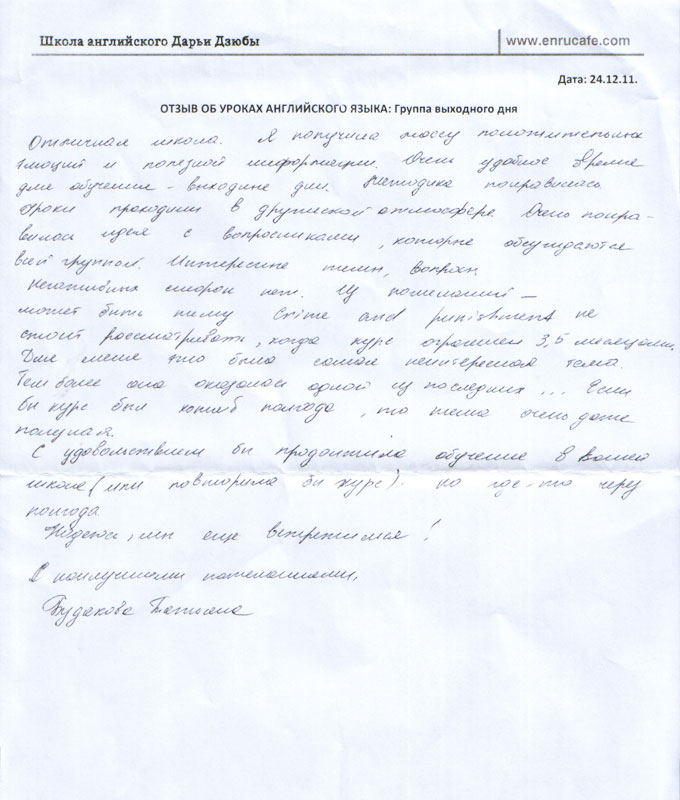 Школа английского Дарьи Дзюбы
www.enrucafe.com
Дата: 24.12.11.
ОТЗЫВ ОБ УРОКАХ АНГЛИЙСКОГО ЯЗЫКА: Группа выходного дня
Отличная школа. Я получила массу положительных
эмоций и полезной информации. Очень удобное время
для обучения - выходные дни. Методика понравилась.
Уроки проходили в дружеской атмосфере. Очень понра-
вилась идея с вопросниками, которые обсуждаются
всей группой. Интересные темы, вопросы.
Негативных сторон нет. Из пожеланий -
может быть тему Crime and punishment не
стоит рассматривать, когда курс ограничен 3,5 месяцами.
Для меня это была самая неинтересная тема.
Тем более она оказалась одной из последних ... Если
бы курс был хотя б полгода, то тема очень даже
полезная.
С удовольствием бы продолжила обучение в Вашей
школе (или повторила бы курс). но где-то через
полгода
Надеюсь, мы еще встретимся!
С наилучшими пожеланиями,
Будакова Татьяна